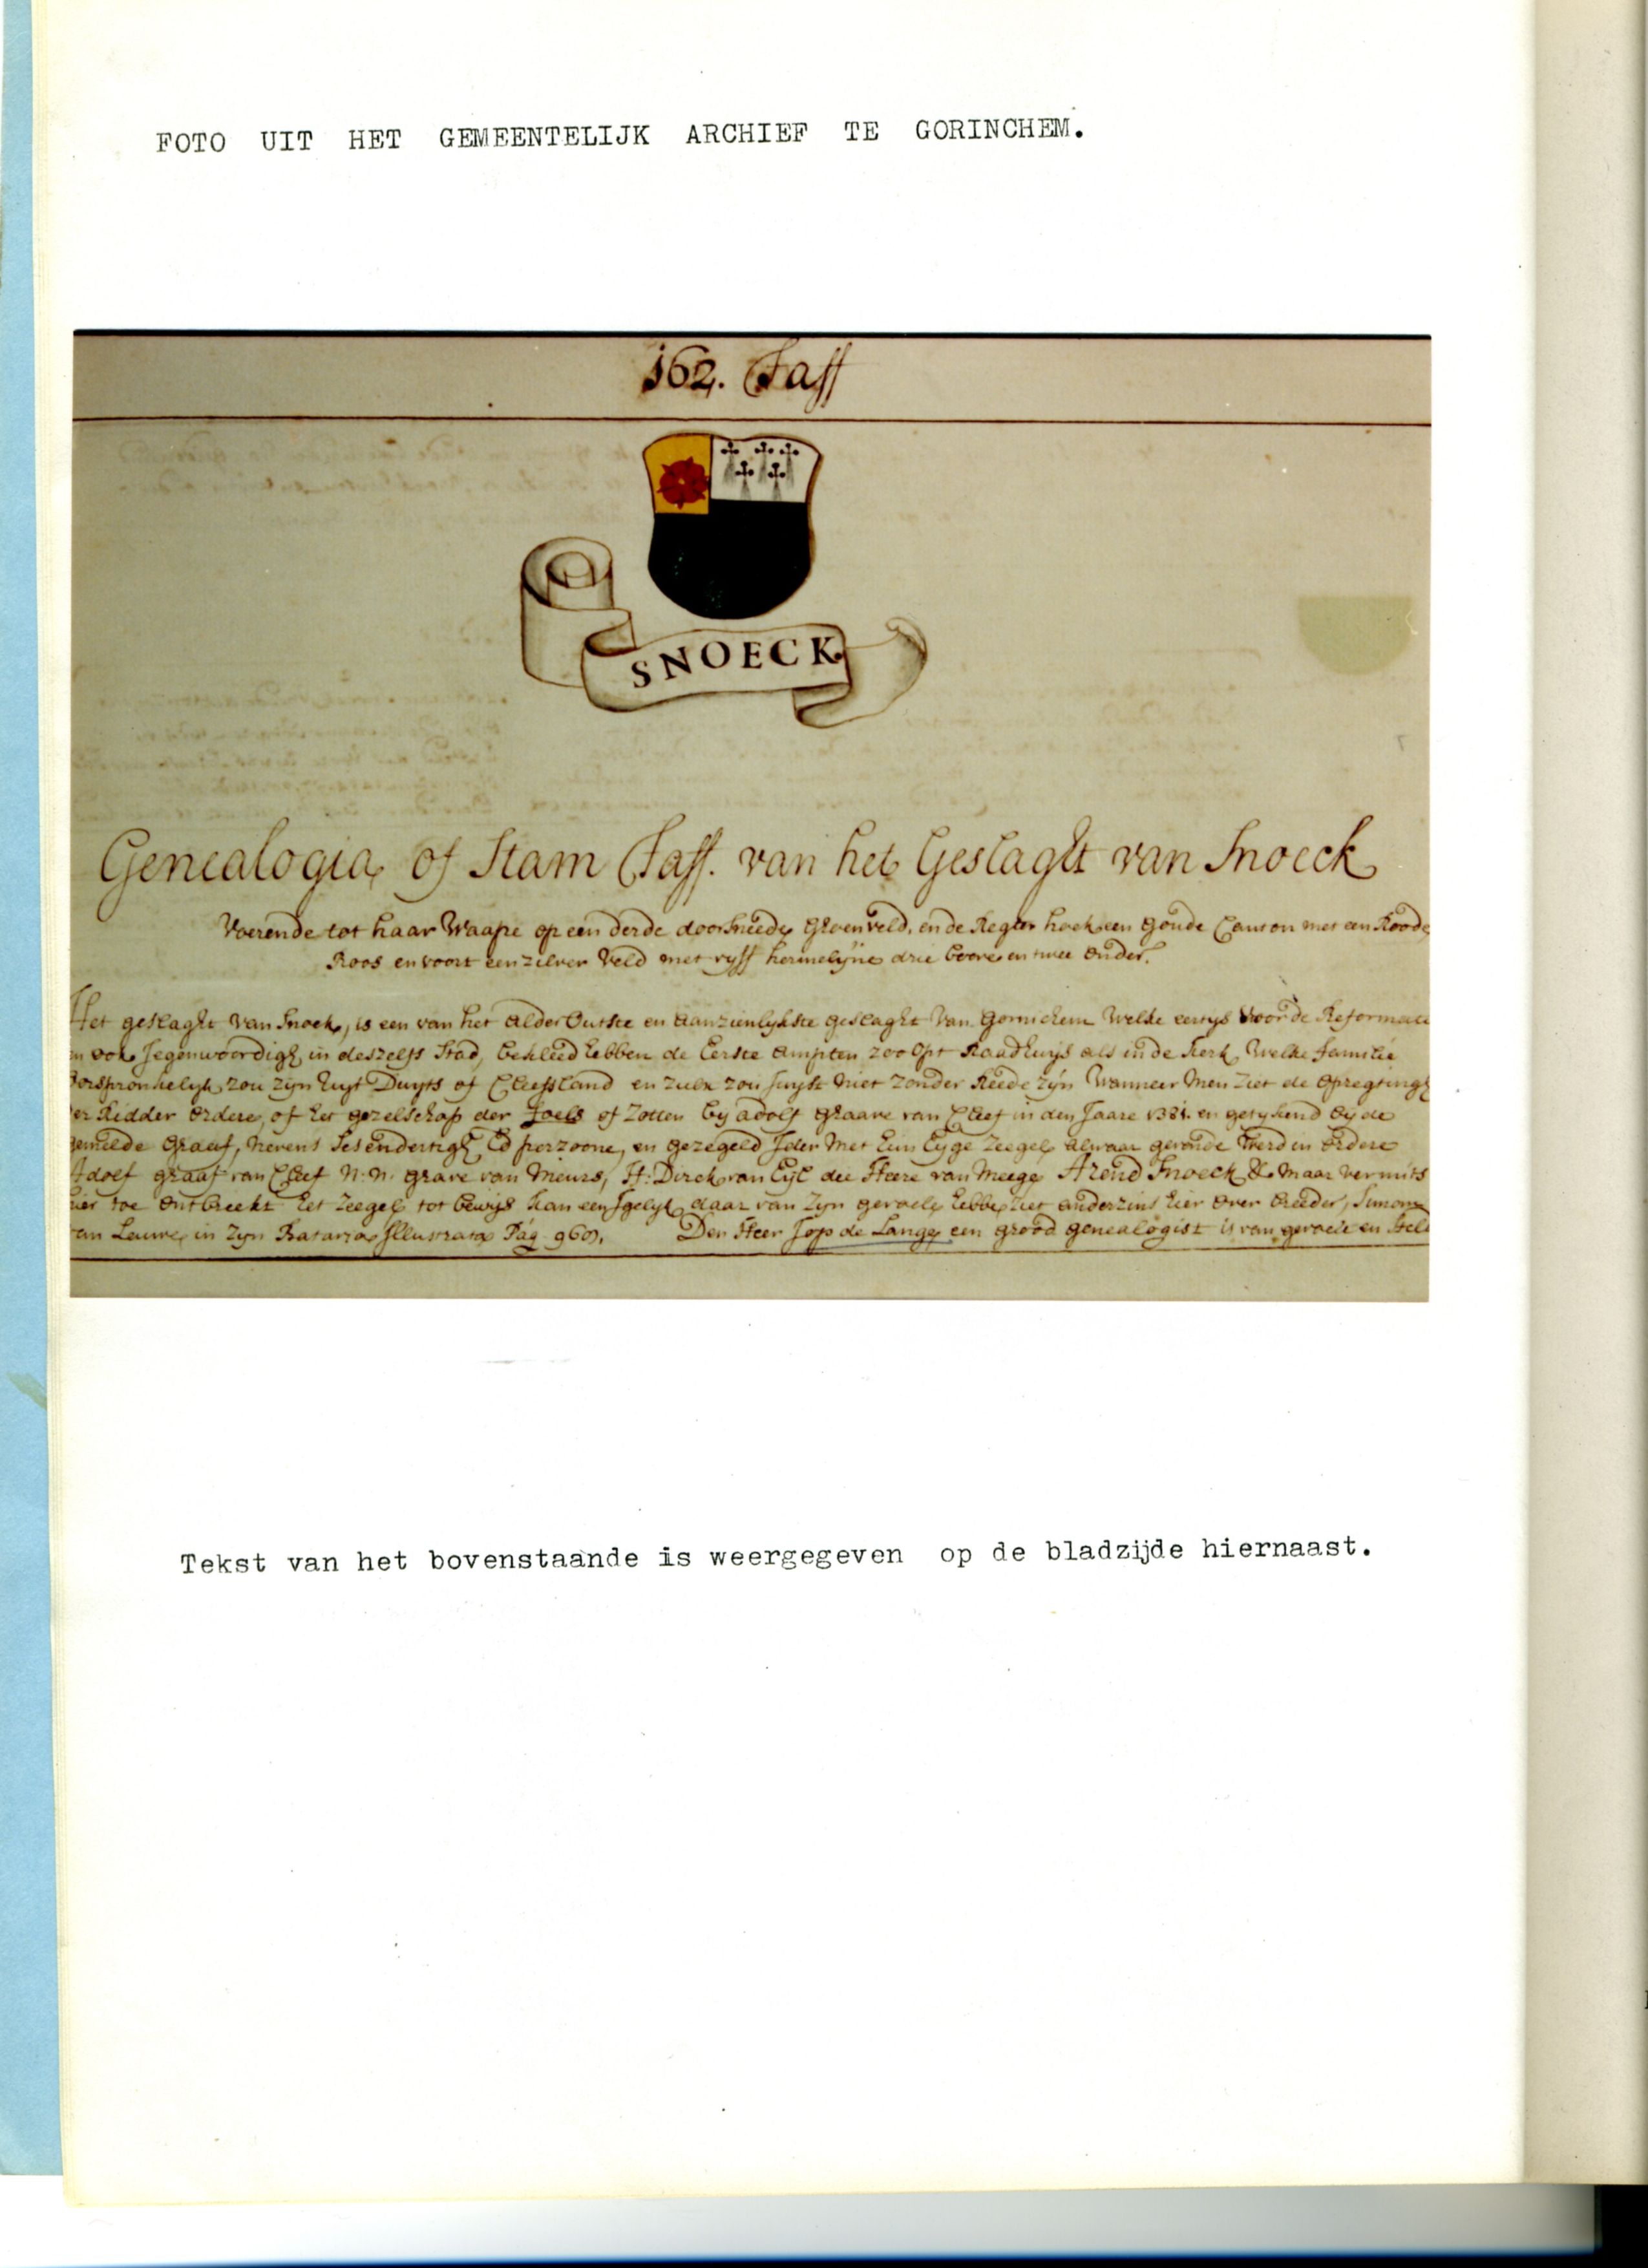 FOTO UIT HET GEMEENTELIJK ARCHIEF TE GORINCHEM.
162. Taff
SNOECK
Genealogia of Stam Taff. van het Geslaght van Snoeck
Voerende tot haar Waape op een derde doorsneede Groen veld, en de Regter hoek een Goude Canton met een Roode
Roos en voort een zilver Veld met vyff hermelyne drie boove en twee onder.
Het geslaght van Snoek, is een van het alder Outste en aanzienlykste geslaght van Gornichem Welke eertys voor de Reformati
en ook Jegenwoordigh in deszelfs Stad, bekleed hebben de Eerste ampten zoo opt Raadhuys als in de kerk, Welke familie
oorspronkelyk zou zyn huyt Duyts of Cleefsland en zulx zou juyst niet zonder Reede zyn Wanneer men ziet de opregtingh
der Ridder ordere, of het gezelschap der Joels of Zotten by adolf graave van Cleef in den Jaare 1381. en getykend by de
gemelde Graaf, nevens Sesendertigh Ed perzoone, en gezegeld Jder met Een Eyge Zeegel, alwaar gevonde werd in ordere
Adolf graaf van Cleef N: N: grave van Meurs, H: Dirck van Eyl die Heere van Meege Arend Snoeck &c maar vermits
hier toe ontbreekt het zeegel tot bewys kan een Jgelyk daar van zyn gevoele hebbe, ziet anderzins hier over breeder, Simon
van Leuwe, in zyn Batavia Jllustrata Pag. 969. Den Heer Jop de Lange een grood genealogist is van gevoele en stel
Tekst van het bovenstaande is weergegeven op de bladzijde hiernaast.